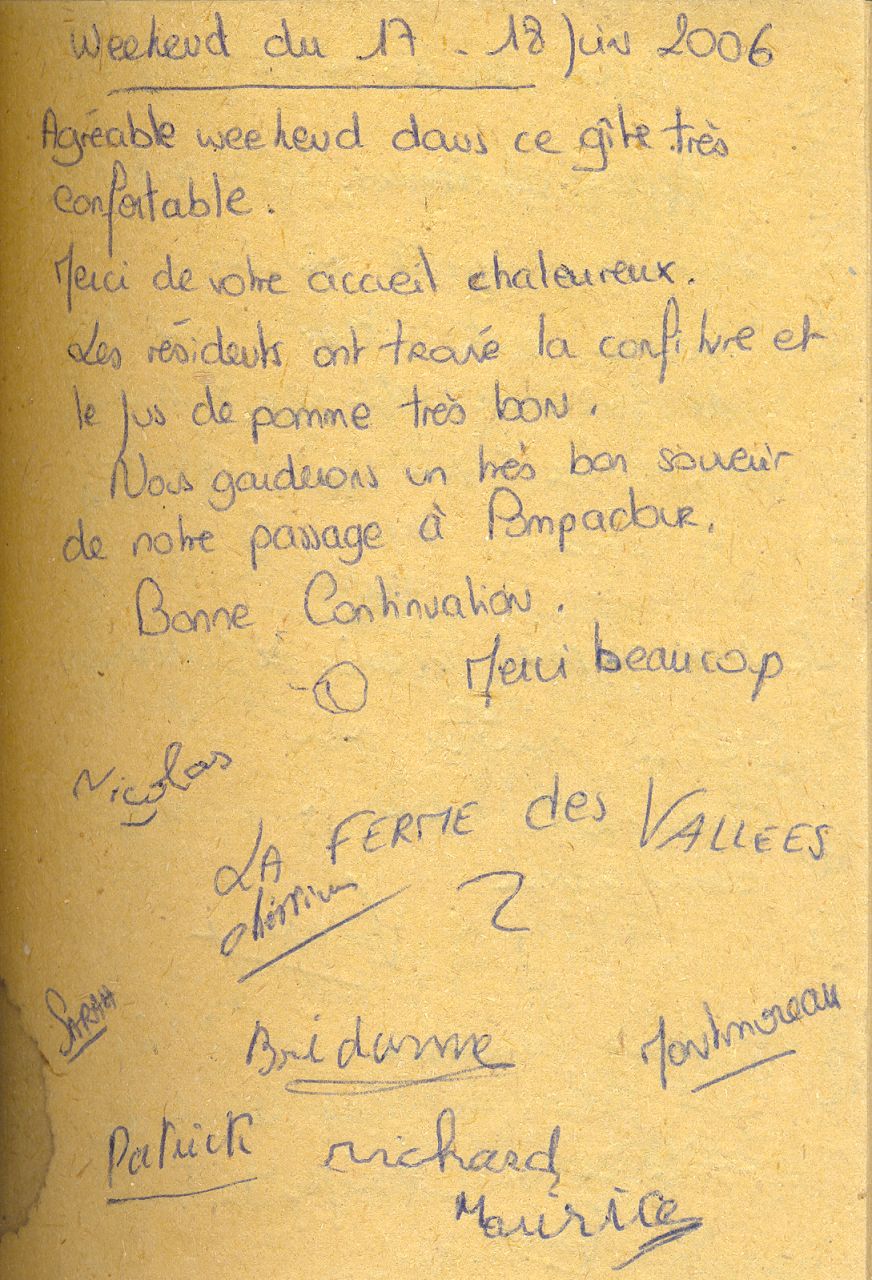 Weekend du 17 - 18 Juin 2006
Agréable weekend dans ce gîte très
confortable.
Merci de votre accueil chaleureux.
Les résidents ont trouvé la confiture et
le jus de pomme très bon.
Nous garderons un très bon souvenir
de notre passage à Pompadour.
Bonne Continuation.
Merci beaucoup
Nicolas
LA FERME des VALLEES
SARAH
Montmoreau
Patrick richard
Maurice